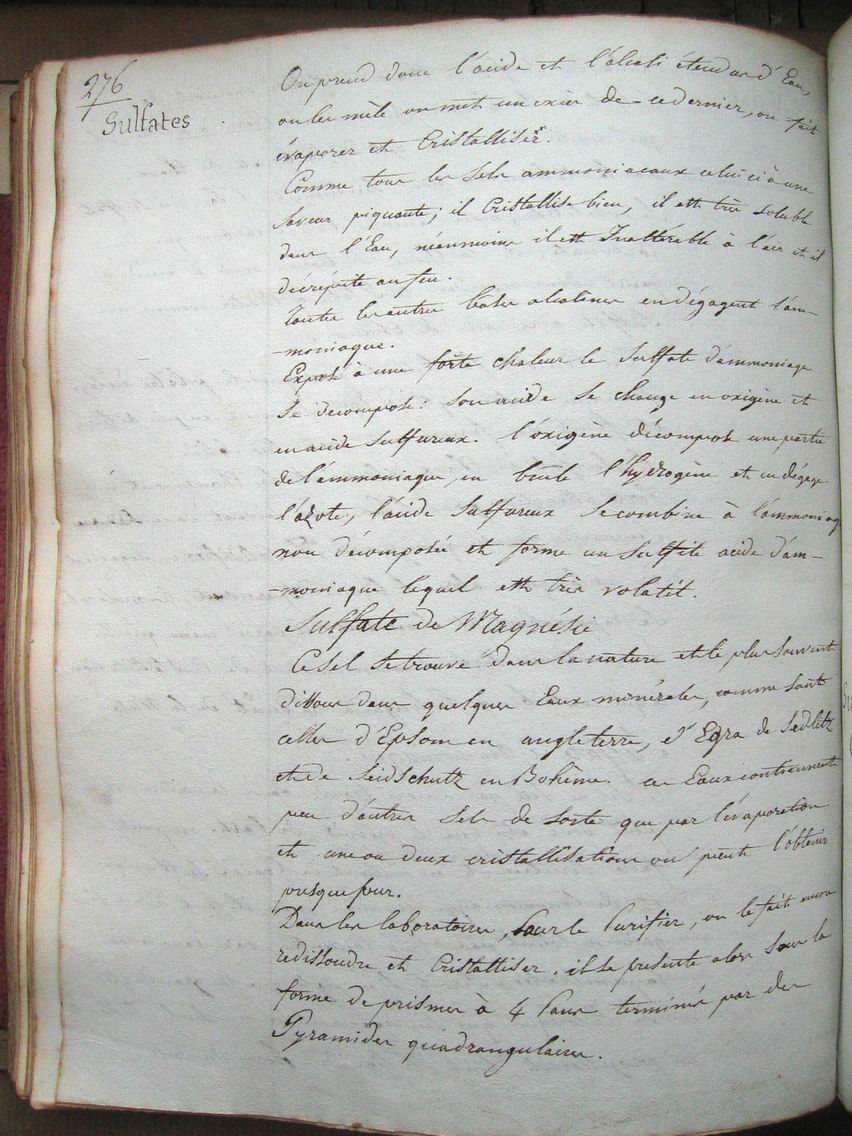 276
Sulfates
On prend donc l'acide et l'alcali étendus d'Eau,
on les mêle on met un excès de ce dernier, on fait
évaporer et Cristalliser.
Comme tous les Sels ammoniacaux celui ci à une
Saveur piquante; il Cristallise bien, il est très soluble
dans l'Eau, néanmoins il est Inaltérable à l'air et il
décrépite au feu.
Toutes les autres bases alcalines en dégagent l'am-
-moniaque.
Exposé à une forte chaleur le Sulfate d'ammoniaque
Se décompose: son acide se change en oxigène et
en acide Sulfureux. l'oxigène décompose une partie
de l'ammoniaque, en brule l'hydrogène et en dégage
l'azote, l'acide Sulfureux se combine à l'ammoniaq
non décomposée et forme un Sulfite acide d'am-
-moniaque lequel est très volatil.
Sulfate de Magnésie
Ce sel se trouve dans la nature et le plus souvent
dissous dans quelques Eaux minérales, comme sont
celles d'Epsom en angleterre, d'Egra de Sedlitz
et de Seidschutz en Bohême. ces Eaux contiennent
peu d'autres Sels de sorte que par l'évaporation
et une ou deux cristallisations on peut l'obtenir
presque pur.
Dans les laboratoires, pour le Purifier, on le fait encore
redissoudre et Cristalliser. il se présente alors sous la
forme de prismes à 4 Pans terminés par des
Pyramides quadrangulaires.